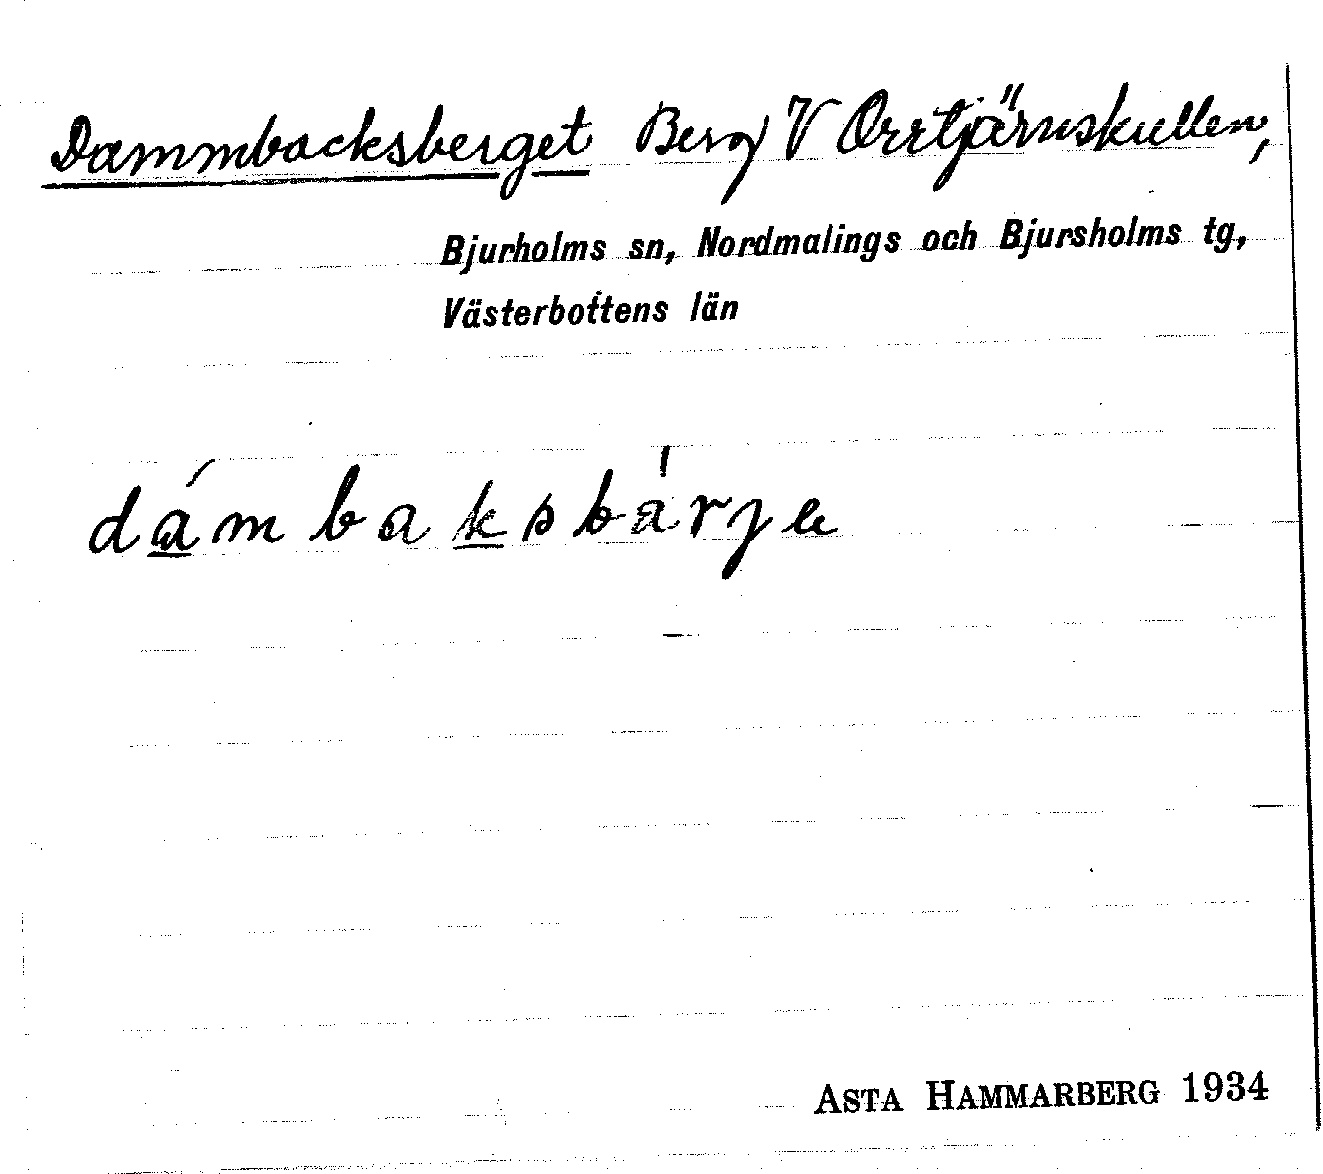 Dammbacksberget Berg V Orrtjärnskullen,
Bjurholms sn, Nordmalings och Bjursholms tg,
Västerbottens län
dámbaksbárje
ASTA HAMMARBERG 1934